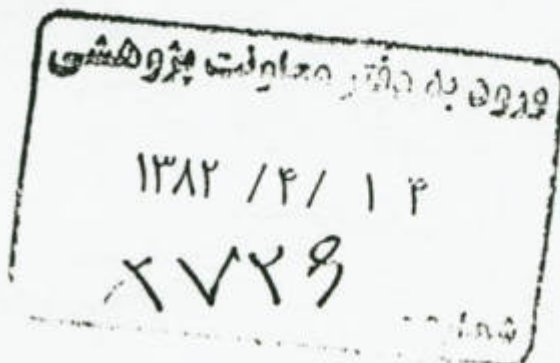 ورود به دفتر معاونت پژوهشی
۱۳۸۲ /۴/ ۱۴
۲۷۲۶
شماره